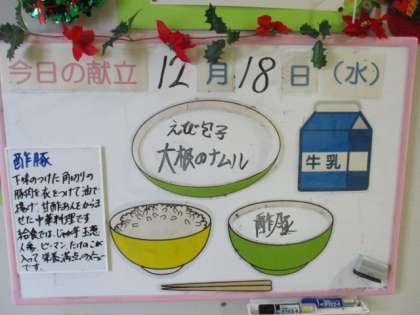 今日の献立 12月18日(水)
えび包子
大根のナムル
牛乳
酢豚
酢豚
下味のつけた角切りの
豚肉を衣をつけて油で
揚げ、甘酢あんをからま
せた中華料理です
給食では、じゃが芋、玉葱
人参、ピーマン、たけのこが
入って栄養満点のメニュー
です。